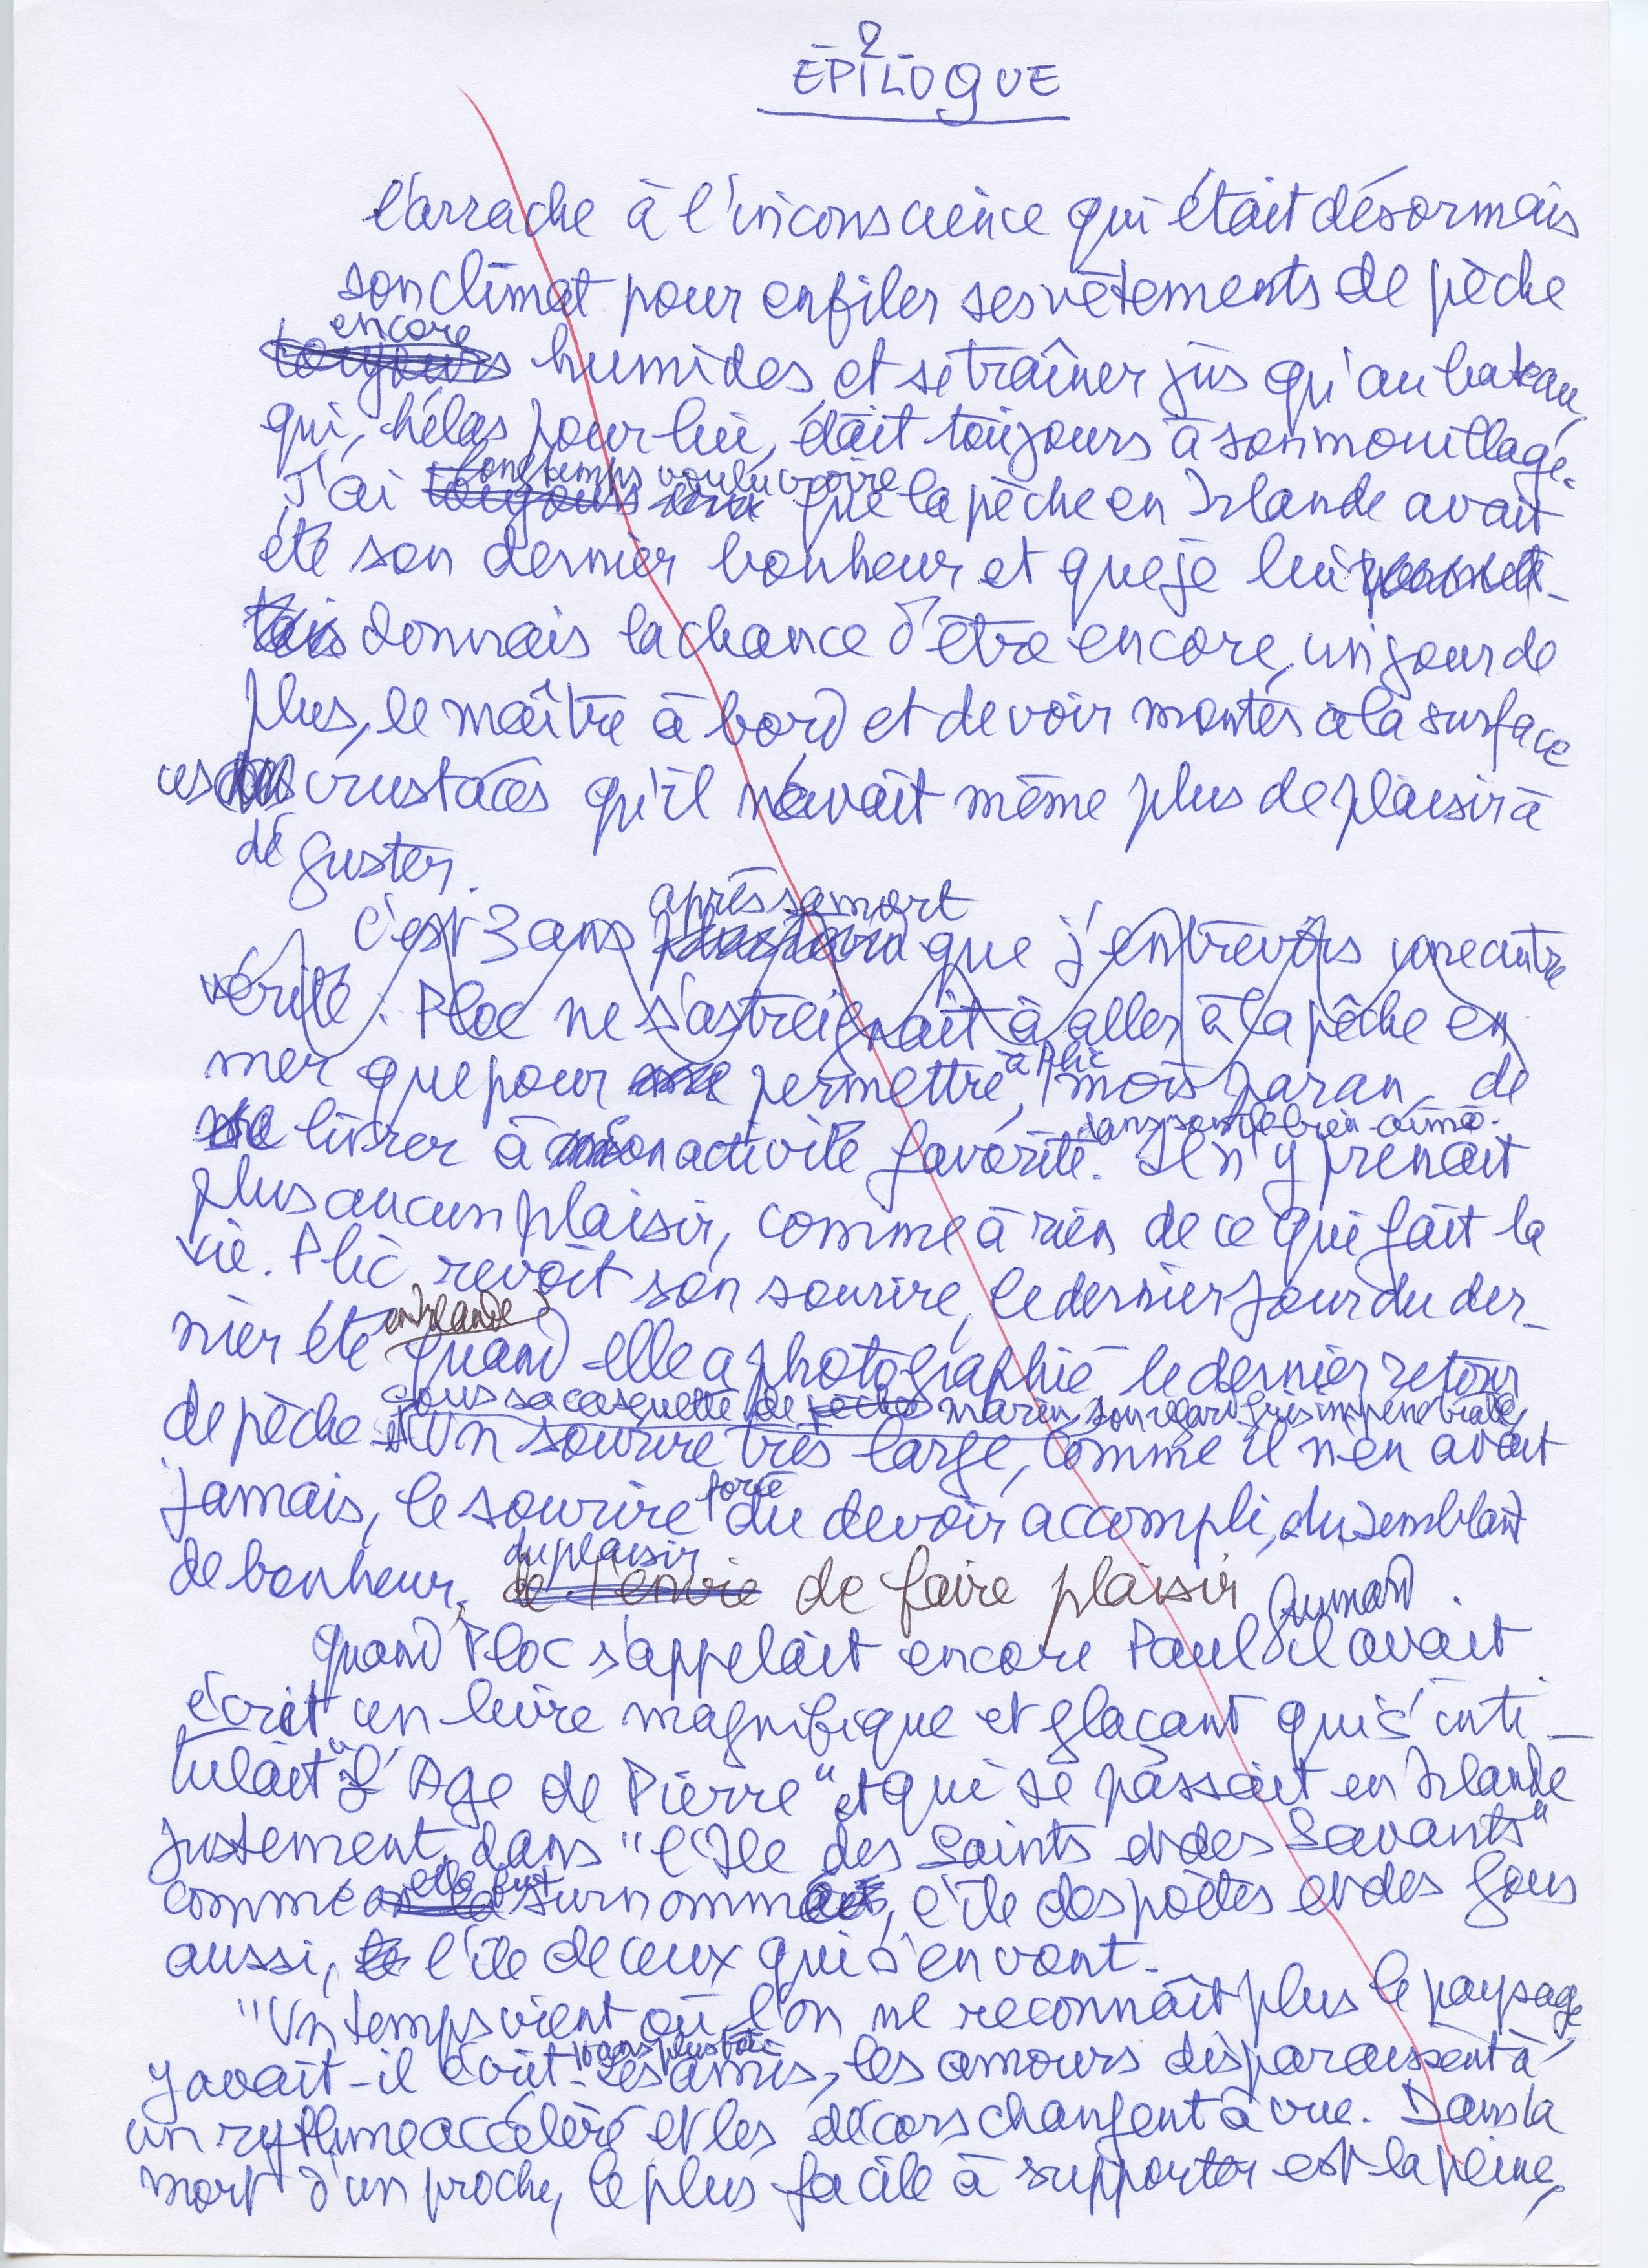 2
ÉPILOGUE
l'arrache à l'inconscience qui était désormais
son climat pour enfiler ses vêtements de pêche
encore
toujours humides, et se traîner jusqu'au bateau,
qui, hélas pour lui, était toujours à son mouillage.
longtemps voulu croire
J'ai toujours que la pêche en Irlande avait
été son dernier bonheur et que je lui permet-
tais donnais la chance d'être encore, un jour de
plus, le maître à bord et de voir monter à la surface
ces crustacés qu'il n'avait même plus de plaisir à
déguster.
après sa mort
C'est 3 ans plus tard que j'entrevois une autre
vérité : Ploc ne s'astreignait à aller à la pêche en
à Plic
mer que pour me permettre, 1 mois par an, de
dans son île bien-aimée.
me livrer à mon activité favorite. Il n'y prenait
plus aucun plaisir, comme à rien de ce qui fait la
vie. Plic revoit son sourire, le dernier jour du der-
en Irlande
nier été quand elle a photographié le dernier retour
sous sa casquette de pêche marin, son regard gris impénétrable,
de pêche. Un sourire très large, comme il n'en avait
forcé
jamais, le sourire du devoir accompli, du semblant
du plaisir
de bonheur, de l'envie de faire plaisir.
Guimard
Quand Ploc s'appelait encore Paul il avait
écrit un livre magnifique et glaçant qui s'inti-
tulait "L'Age de Pierre" et qui se passait en Irlande
justement, dans "l'Ile des Saints et des Savants"
elle fut
comme on la surnommait, l'île des poètes et des fous
aussi, l'île de ceux qui s'en vont.
"Un temps vient où l'on ne reconnaît plus le paysage,
10 ans plus tôt
y avait-il écrit. Les amis, les amours disparaissent à
un rythme accéléré et les décors changent à vue. Dans la
mort d'un proche, le plus facile à supporter est la peine,